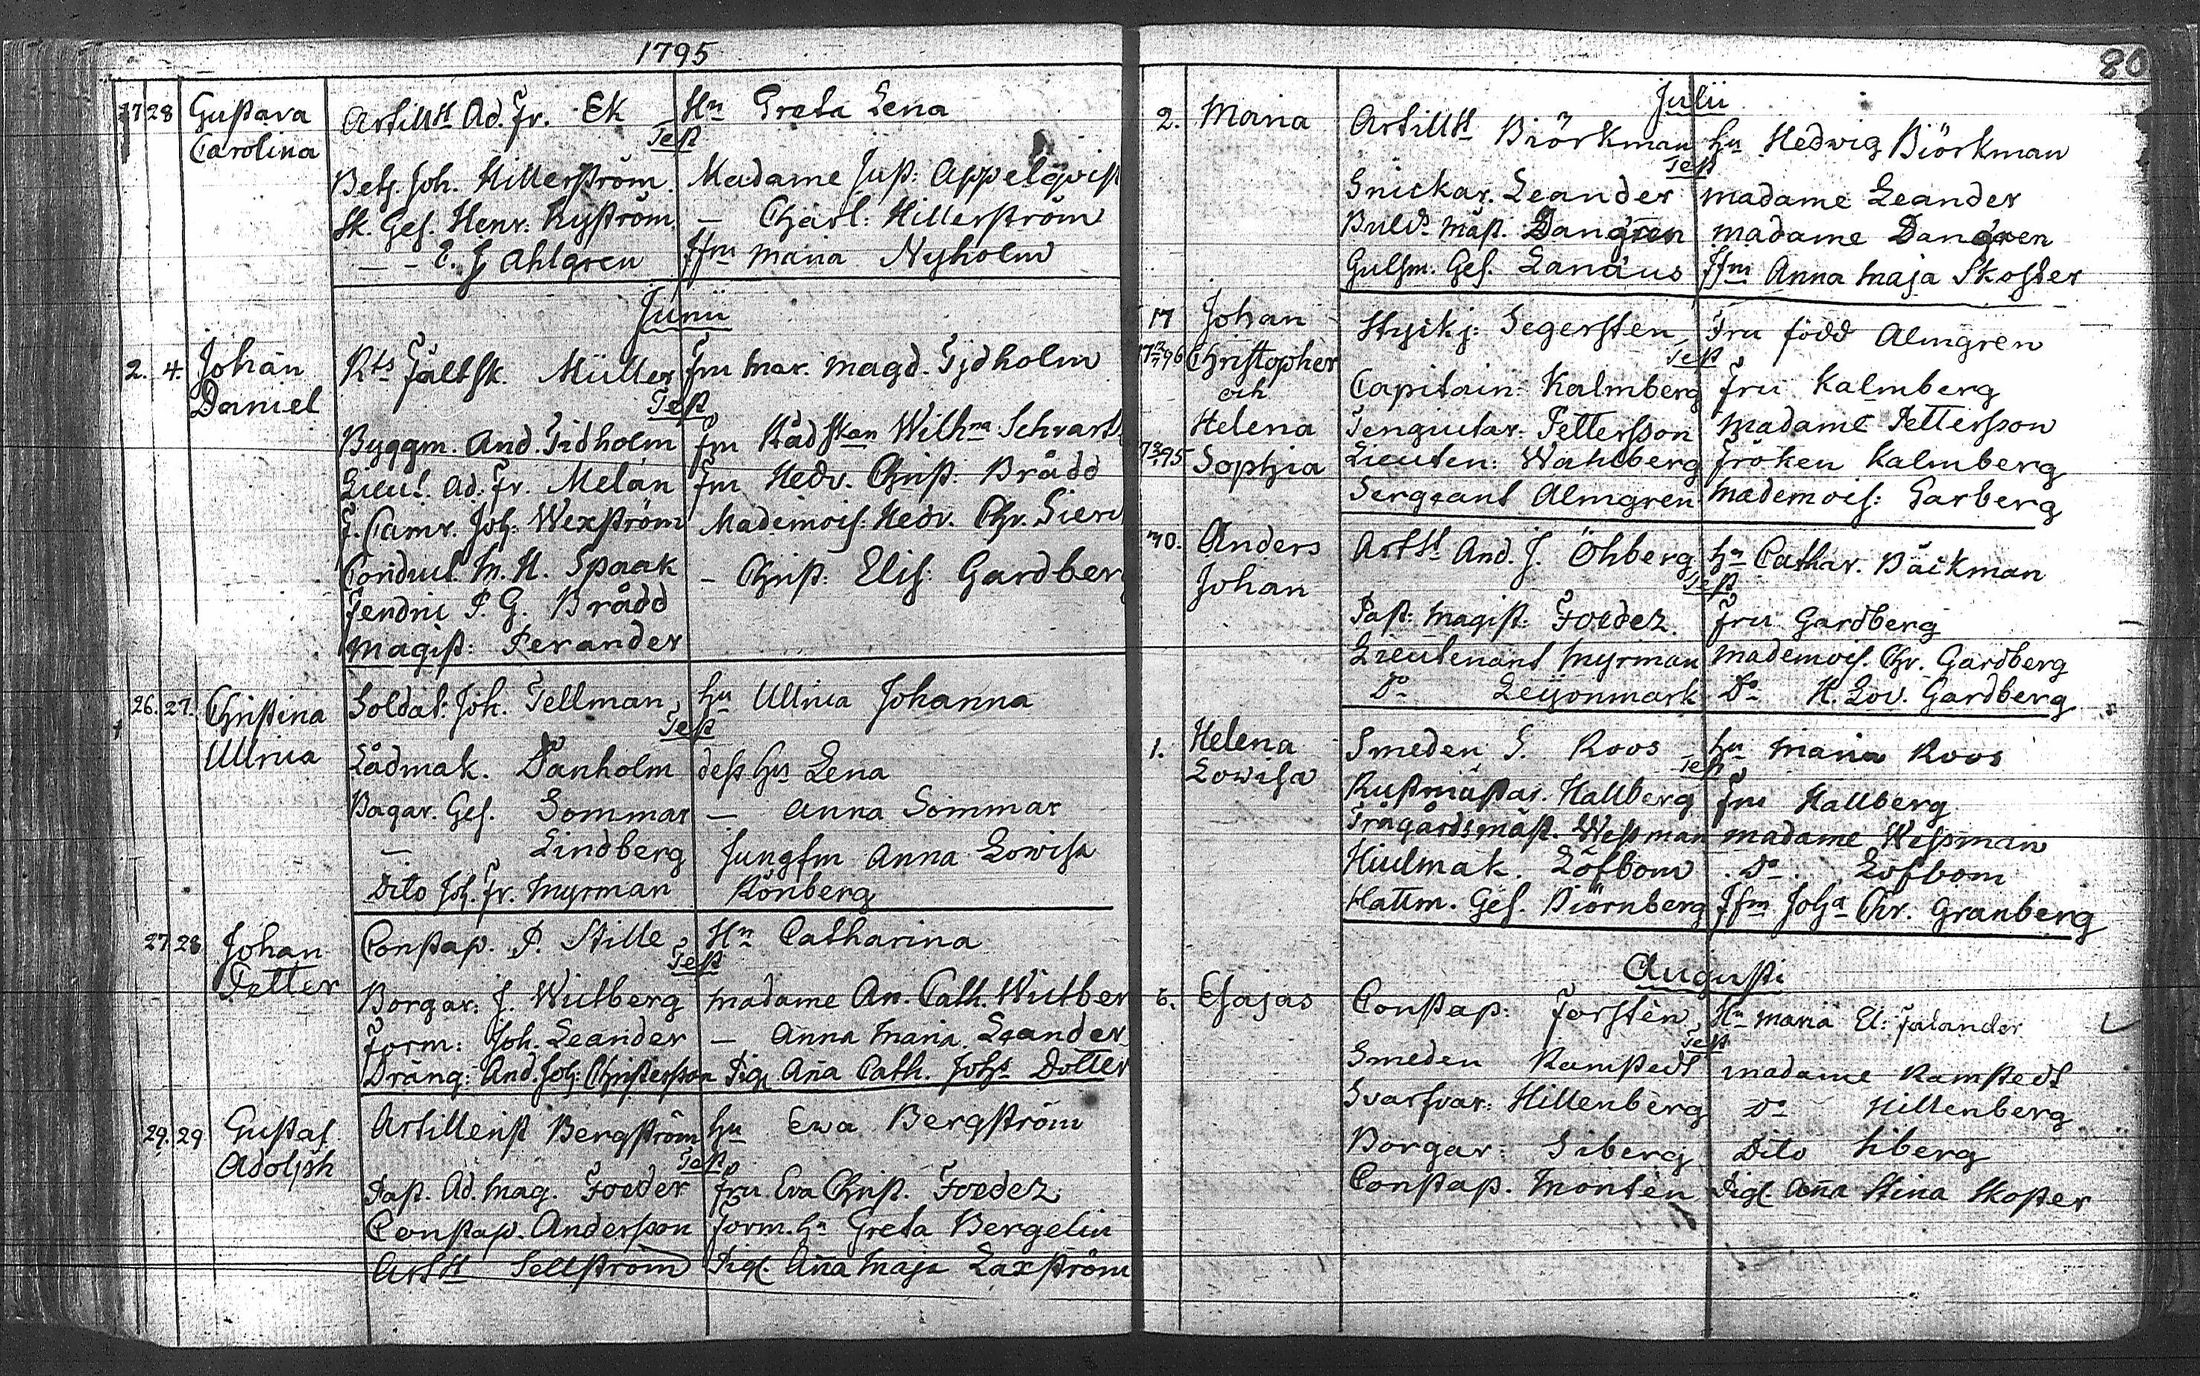 1795
27 28 Gustava Artillst Ad. Fr. Ek Hu Greta Lena
Carolina Test
Betj. Joh. Hillerström. Madame Just: Appelqvist
Sk. Ges. Henr. Nyström. — Charl: Hillerström
— - E. J Ahlgren Jfru Maria Nyholm
Junii
2. 4. Johan Rts Fältsk. Müller Fru Mar. Magd. Tjdholm
Daniel Test
Byggm. And. Tidholm Fru Rådskan Wilhna Schvarts
Lieut. Ad. Fr. Melan Fru Hedv. Christ. Brådd
F. Camr. Joh: Wexström Mademois: Hedv. Chr.
Conduct. M. H. Spaak — Christ: Elis: Gardberg
Fendric P. G. Brådd
Magist: Perander
26. 27. Christina Soldat: Joh. Tellman Hu Ullrica Johanna
Ullrica Test
Lådmak. Danholm dess Hu Lena
Bagar. Ges. Sommar — Anna Sommar
— Lindberg Jungfru Anna Lowisa
Dito Joh. Fr. Myrman Rönberg
27 28 Johan Constap. P. Stille Hu Catharina
Petter Test
Borgar: J. Wictberg Madame An. Cath. Wictber
Form: Joh. Leander — Anna Maria Leander
Dräng: And. Joh: Christersson Pig. Aña Cath. Johs Dotter
29. 29 Gustaf Artillerist Bergström Hu Ewa Bergström
Adolph Test
Past. Ad. Mag. Foeder Fru Eva Christ. Foeder
Constap. Andersson Form. Hu Greta Bergelin
Artst Sellström Pig. Aña Maja Laxström
80
Julii
2. Maria Artillst Biörkman Hu Hedwig Biörkman
Test
Snickar. Leander Madame Leander
Buld. Mäst. Dangren Madame Dangren
Gulsm. Ges. Lanäus Jfru Anna Maja Skoster
17 Johan Styckj: Segersten Fru född Almgren
Christopher Test
och Capitain: Kalmberg Fru Kalmberg
Helena Petterson Madame Petterson
Sophia Lieuten: Wahlberg Fröken Kalmberg
Sergeant Almgren Mademois: Garberg
Anders Artst And. J. Öhberg Hu Cathar. Bäckman
Johan Test
Past: Magist: Foeder Fru Gardberg
Lieutenant Myrman Mademois. Chr. Gardberg
Do Leijonmark Do H. Lov. Gardberg
1. Helena Smeden G. Roos Hu Maria Roos
Lowisa Test
Rustmästar. Hallberg Fru Hallberg
Trägårdsmäst. Wessman Madame Wessman
Hiulmak. Löfbom Do Löfbom
Hattm. Ges. Biörnberg Jfru Joha Chr. Granberg
Augusti
6. Esajas Constap: Forsten Hu Maria El: Falander
Test
Smeden Ramstedt Madame Ramstedt
Svarfvar: Hillenberg Do Hillenberg
Borgar: Siberg Dito Siberg
Constap. Monten Pig. Aña Stina Skoster